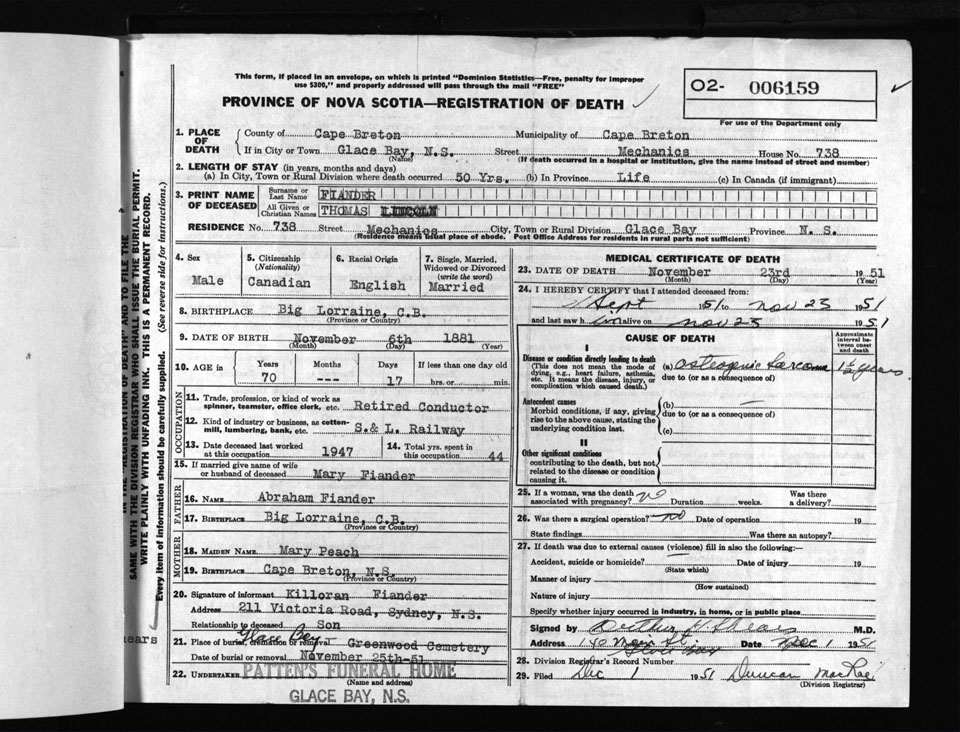 This form, if placed in an envelope, on which is printed "Dominion Statistics—Free, penalty for improper
use $300," and properly addressed will pass through the mail "FREE"
PROVINCE OF NOVA SCOTIA—REGISTRATION OF DEATH
O2- 006159
For use of the Department only
1. PLACE OF DEATH
County of Cape Breton Municipality of Cape Breton
If in City or Town Glace Bay, N.S. Street Mechanics House No. 738
(Name) (If death occurred in a hospital or institution, give the name instead of street and number)
2. LENGTH OF STAY (in years, months and days)
(a) In City, Town or Rural Division where death occurred 50 Yrs. (b) In Province Life (c) In Canada (if immigrant)
3. PRINT NAME OF DECEASED
Surname or Last Name FIANDER
All Given or Christian Names THOMAS LINCOLN
RESIDENCE No. 738 Street Mechanics City, Town or Rural Division Glace Bay Province N. S.
(Residence means usual place of abode. Post Office Address for residents in rural parts not sufficient)
4. Sex
Male
5. Citizenship
(Nationality)
Canadian
6. Racial Origin
English
7. Single, Married,
Widowed or Divorced
(write the word)
Married
8. BIRTHPLACE Big Lorraine, C.B.
(Province or Country)
9. DATE OF BIRTH November 6th 1881
(Month) (Day) (Year)
10. AGE in
Years Months Days If less than one day old
70 --- 17 hrs. or min.
OCCUPATION
11. Trade, profession, or kind of work as
spinner, teamster, office clerk, etc. Retired Conductor
12. Kind of industry or business, as cotton-
mill, lumbering, bank, etc. S.& L. Railway
13. Date deceased last worked
at this occupation 1947
14. Total yrs. spent in
this occupation 44
15. If married give name of wife
or husband of deceased Mary Fiander
FATHER
16. NAME Abraham Fiander
17. BIRTHPLACE Big Lorraine, C.B.
(Province or Country)
MOTHER
18. MAIDEN NAME Mary Peach
19. BIRTHPLACE Cape Breton, N.S.
(Province or Country)
20. Signature of informant Killoran Fiander
Address 211 Victoria Road, Sydney, N.S.
Relationship to deceased Son
21. Place of burial, cremation or removal Glace Bay Greenwood Cemetery
Date of burial or removal November 25th-51
22. UNDERTAKER PATTEN'S FUNERAL HOME
(Name and address)
GLACE BAY, N.S.
MEDICAL CERTIFICATE OF DEATH
23. DATE OF DEATH November 23rd 1951
(Month) (Day) (Year)
24. I HEREBY CERTIFY that I attended deceased from:
Sept 1951 to Nov 23 1951
and last saw h im alive on Nov 23 1951
CAUSE OF DEATH
Approximate interval between onset and death
I
Disease or condition directly leading to death
(This does not mean the mode of
dying, e.g., heart failure, asthenia,
etc. It means the disease, injury, or
complication which caused death.)
(a) Osteogenic Sarcoma 1½ years
due to (or as a consequence of)
Antecedent causes
Morbid conditions, if any, giving
rise to the above cause, stating the
underlying condition last.
(b) —
due to (or as a consequence of)
(c)
II
Other significant conditions
contributing to the death, but not
related to the disease or condition
causing it.
25. If a woman, was the death
associated with pregnancy? no Duration weeks. Was there
a delivery?
26. Was there a surgical operation? no Date of operation 19
State findings Was there an autopsy?
27. If death was due to external causes (violence) fill in also the following:—
Accident, suicide or homicide? Date of injury 19
(State which)
Manner of injury
(How sustained)
Nature of injury
Specify whether injury occurred in industry, in home, or in public place
Signed by Arthur H. Shears M.D.
Address Main St. Date Dec 1 1951
Glace Bay
28. Division Registrar's Record Number
29. Filed Dec 1 1951 Duncan MacRae
(Division Registrar)
SAME WITH THE DIVISION REGISTRAR WHO SHALL ISSUE THE BURIAL PERMIT.
WRITE PLAINLY WITH UNFADING INK. THIS IS A PERMANENT RECORD.
Every item of information should be carefully supplied. (See reverse side for instructions.)